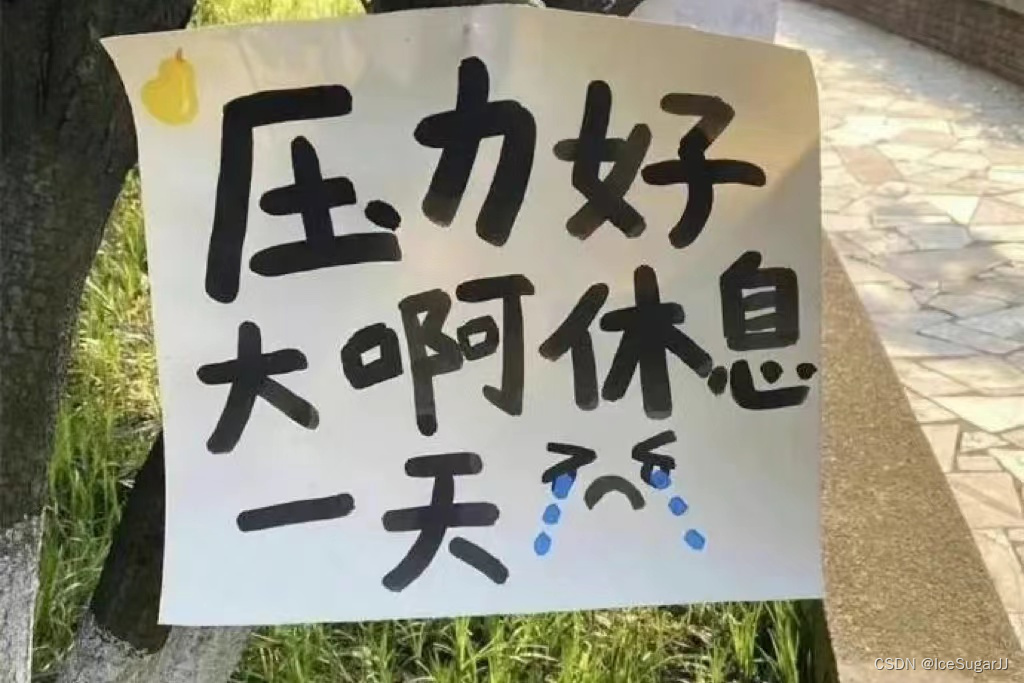 压力好
大啊休息
一天
CSDN @IceSugarJJ